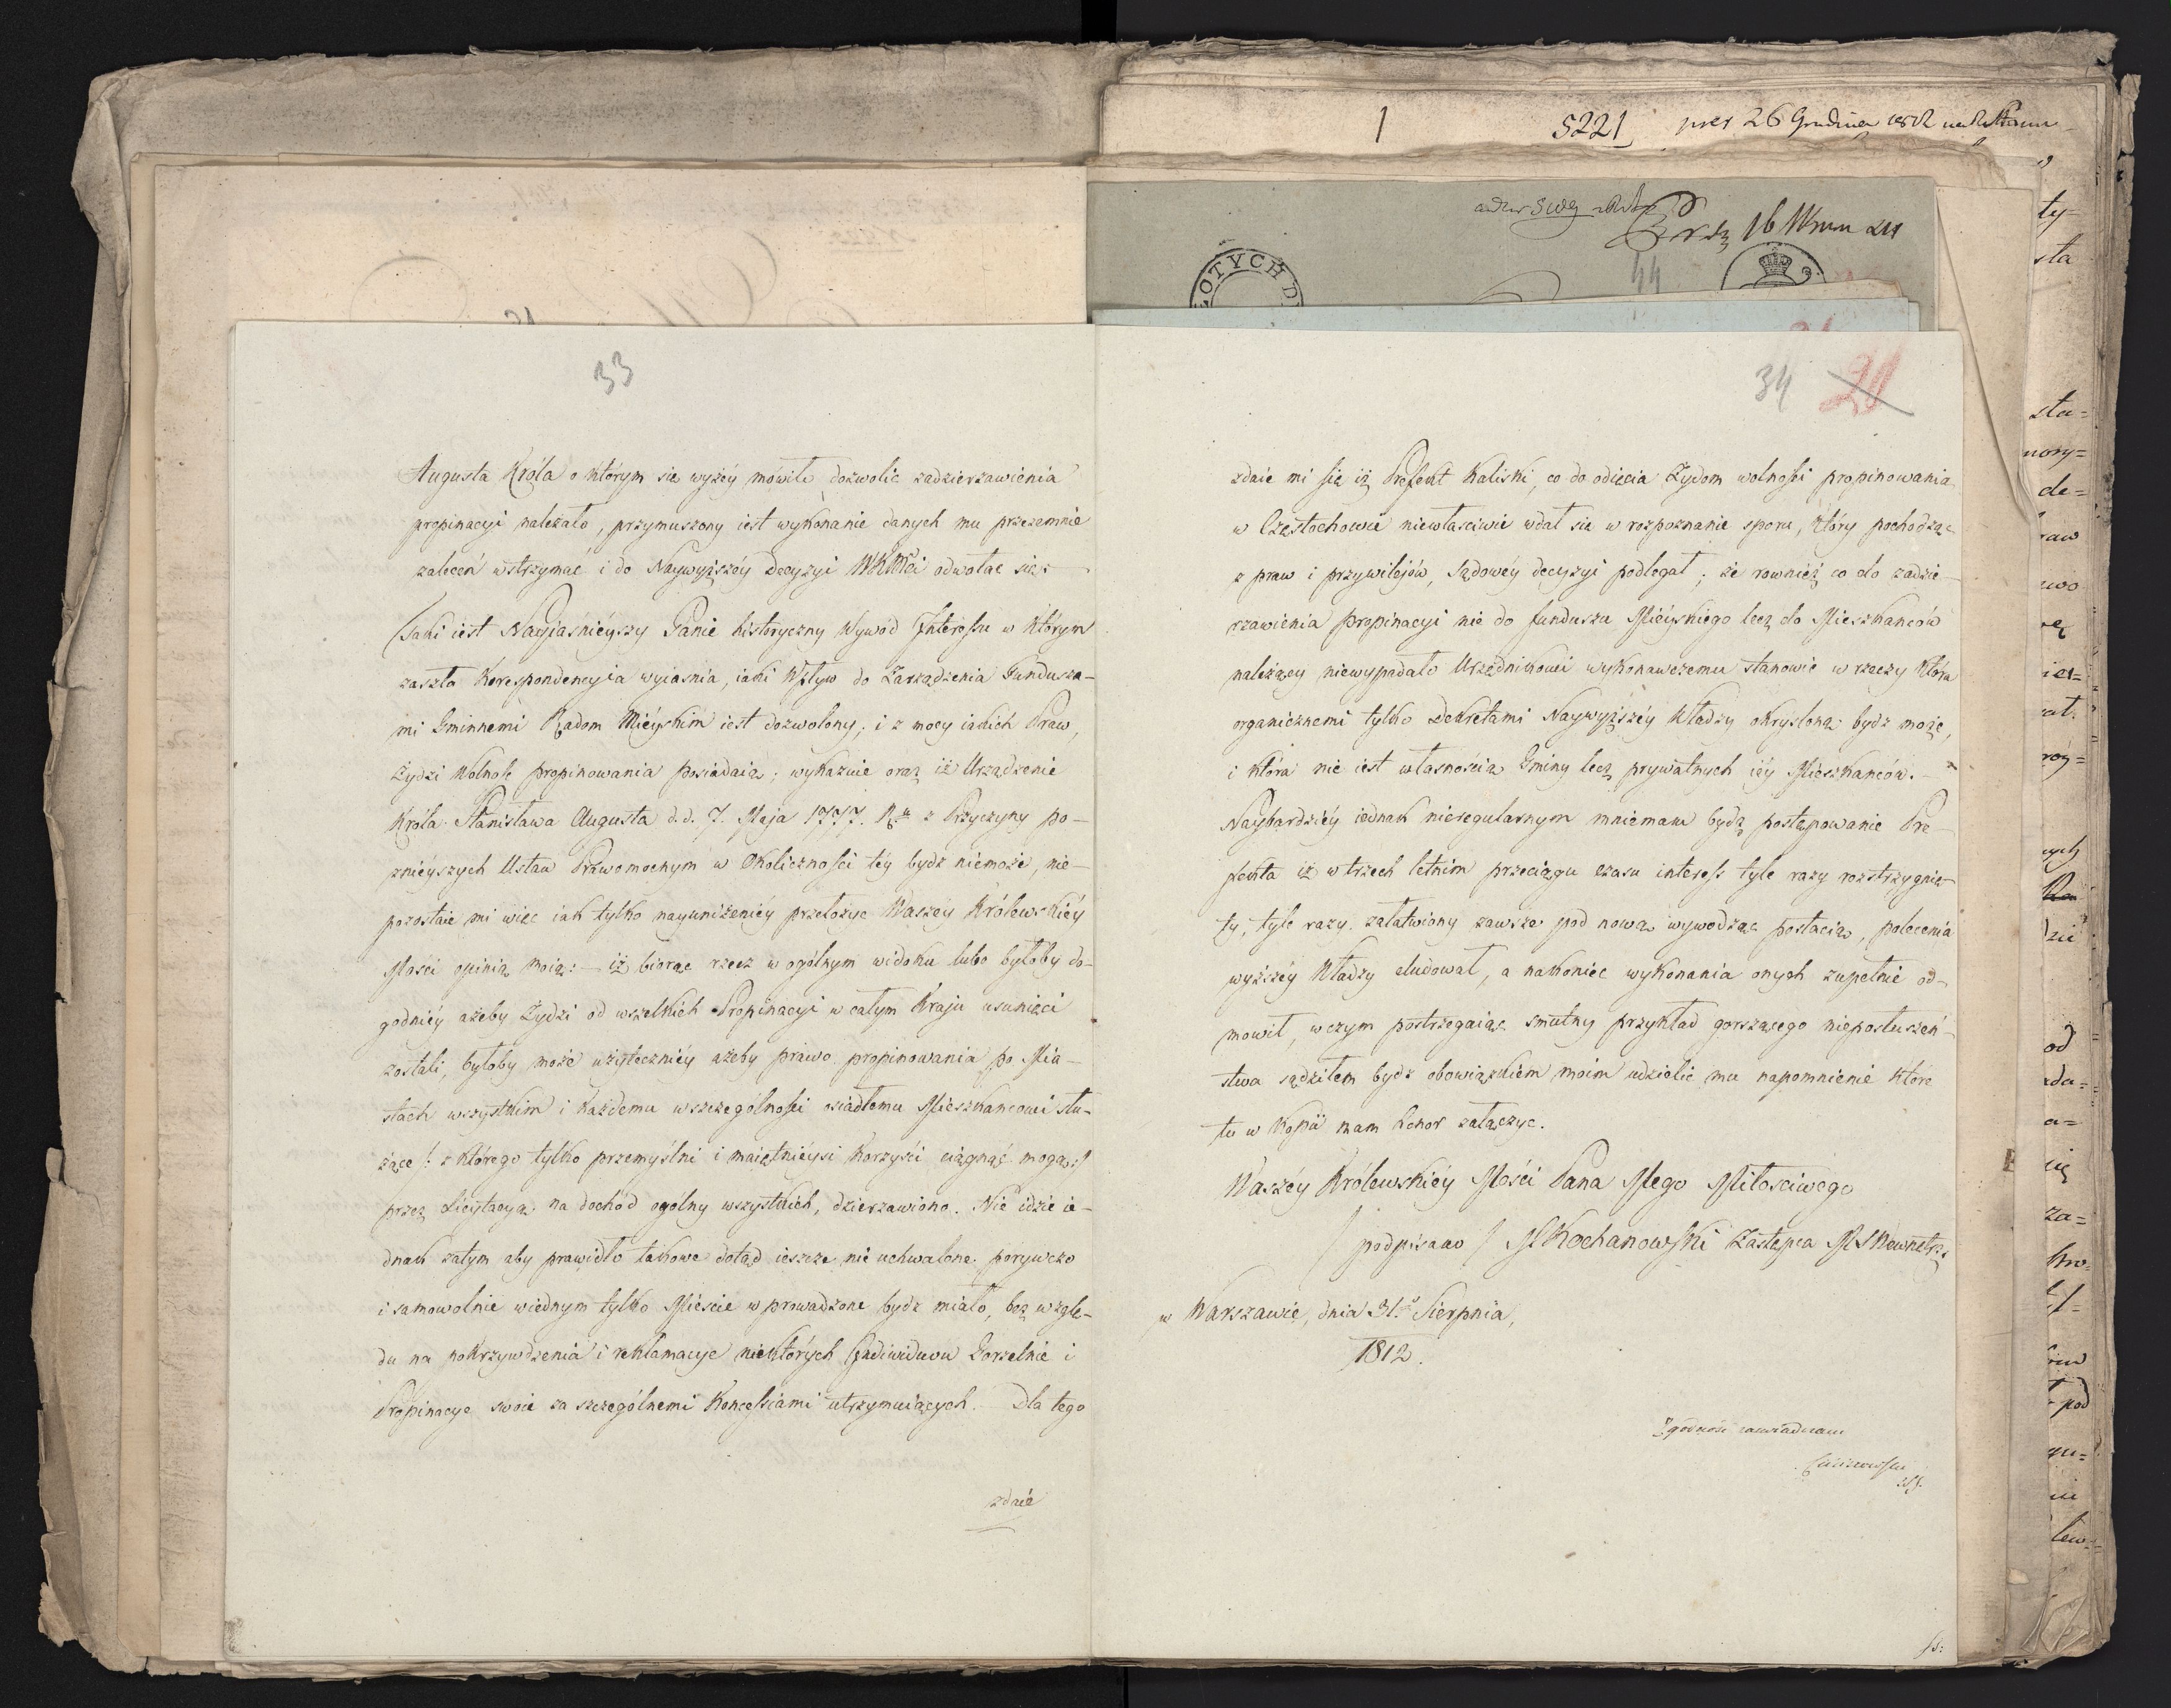 1 5221 26 Grudnia 1812
16
OTYCH D
44
33
Augusta Króla o którym sie wyżéy mówiło dozwolić zadzierzawienia
propinacyi należało, przymuszony iest wykonanie danych mu przezemnie
zaleceń wstrzymać i do Naywyższéy Decyzyi WKMci odwołac się: —
Jaki iest Nayjaśnieyszy Panie historyczny Wywód Interessu w którym
zaszła Korespondencyia wyiaśnia, iaki Wpływ do Zarządzenia Fundusza-
mi Gminnemi Radom Mieyskim iest dozwolony; i z mocy iakich Praw,
Żydzi Wolnośc propinowania posiadaią; wykazuie oraz iż Urządzenie
Króla Stanisława Augusta d.d. 7. Maja 1777. Ru z Przyczyny po-
znieyszych Ustaw Prawomocnym w Okolicznosci téy bydz niemoże, nie-
pozostaie mi więc iak tylko nayuniżeniéy przełożyc Waszéy Królewskiéy
Mości opinią moią: — iż biorąc rzecz w ogólnym widoku lubo byłoby do-
godniéy ażeby Żydzi od wszelkich Propinacyi w całym Kraju usunięci
zostali, byłoby może użyteczniéy ażeby prawo propinowania po Mia-
stach wszystkim i każdemu w szczególności osiadłemu Mieszkancowi słu-
żące /: z którego tylko przemyślni i maiętnieysi korzyści ciągnąć mogą:/
przez Licytacyą na dochód ogólny wszystkich, dzierzawiono. Nie idzie ie-
dnak zatym aby prawidło takowe dotąd ieszcze nie uchwalone porywczo
i samowolnie wiednym tylko Mieście wprowadzone bydz miało, bez wzglę-
du na pokrzywdzenia i reklamacye niektórych Individuow Gorzelnie i
Propinacye swoie za szczególnemi Koncessiami utrzymuiących. — Dla tego
zdaie
34 21
zdaie mi się iż Prefekt Kaliski, co do odięcia Żydom wolności propinowania
w Częstochowie niewłasciwie wdał się w rozpoznanie sporu, który pochodząc
z praw i przywilejów, Sądowéy decyzyi podlegał; że rownież co do zadzie-
rzawienia propinacyi nie do funduszu Mieyskiego lecz do Mieszkanców
należący niewypadało Urzędnikowi wykonawczemu stanowic w rzeczy która
organicznemi tylko Dekretami Naywyższéy Władzy okryslona bydz może,
i która nie iest własnością Gminy lecz prywatnych iéy Mieszkanców. —
Naybardziéy iednak nieregularnym mniemam bydz postępowanie Pre-
fekta iż w trzech letnim przeciągu czasu interess tyle razy rozstrzygnię-
ty, tyle razy załatwiony zawsze pod nową wywodząc postacią, polecenia
wyższéy Władzy eludował, a nakoniec wykonania onych zupełnie od-
mowił, w czym postrzegaiąc smutny przykład gorszącego nieposłuszeń-
stwa sądziłem bydz obowiązkiem moim udzielic mu napomnienie które
tu w Kopii mam honor załączyc.
Waszéy Królewskiéy Mości Pana Mego Miłosciwego
/ podpisano / M Kochanowski Zastępca M S Wewnętrz:
w Warszawie, dnia 31.° Sierpnia,
1812.
Zgodność zaswiadczam